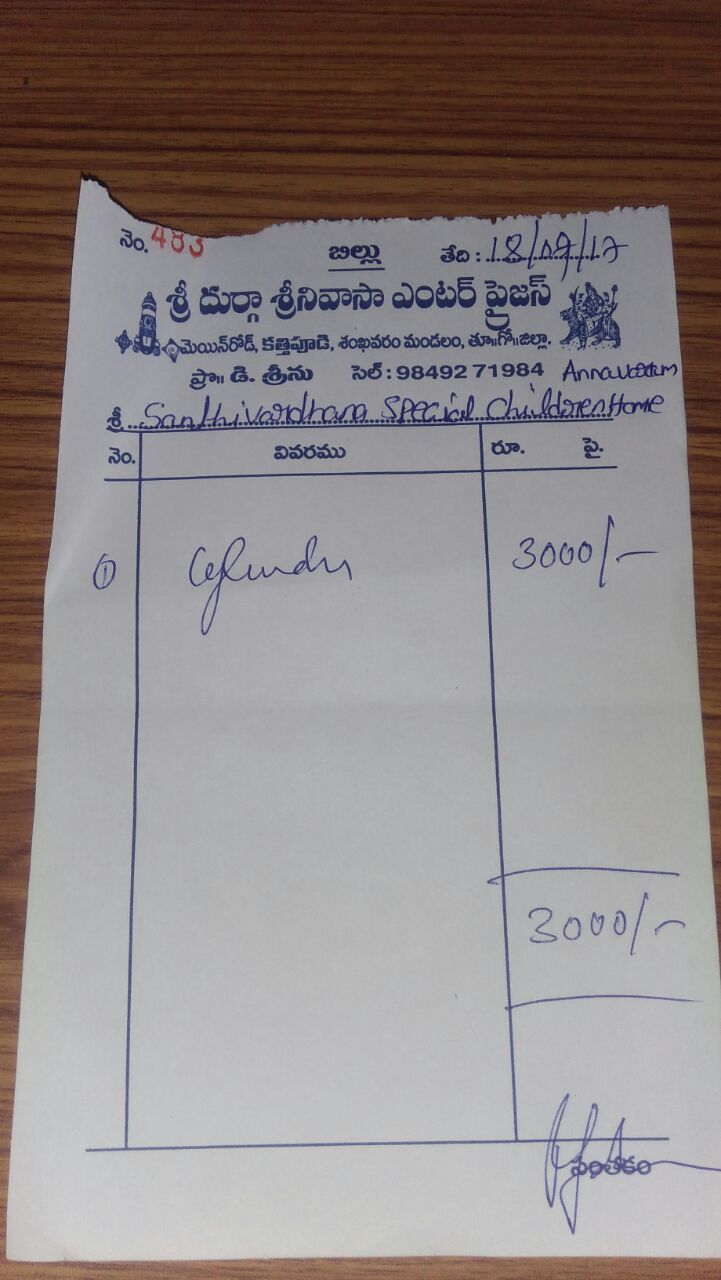 నెం. 483 బిల్లు తేది : 18/07/17
శ్రీ దుర్గా శ్రీనివాసా ఎంటర్ ప్రైజస్
మెయిన్‌రోడ్, కత్తిపూడి, శంఖవరం మండలం, తూ॥గో॥జిల్లా.
ప్రొ॥ డి. శ్రీను సెల్ : 98492 71984 Annavaram
శ్రీ Santhivardhana Special Children Home
నెం. వివరము రూ. పై.
① Cylinder 3000/-
3000/-
సంతకం